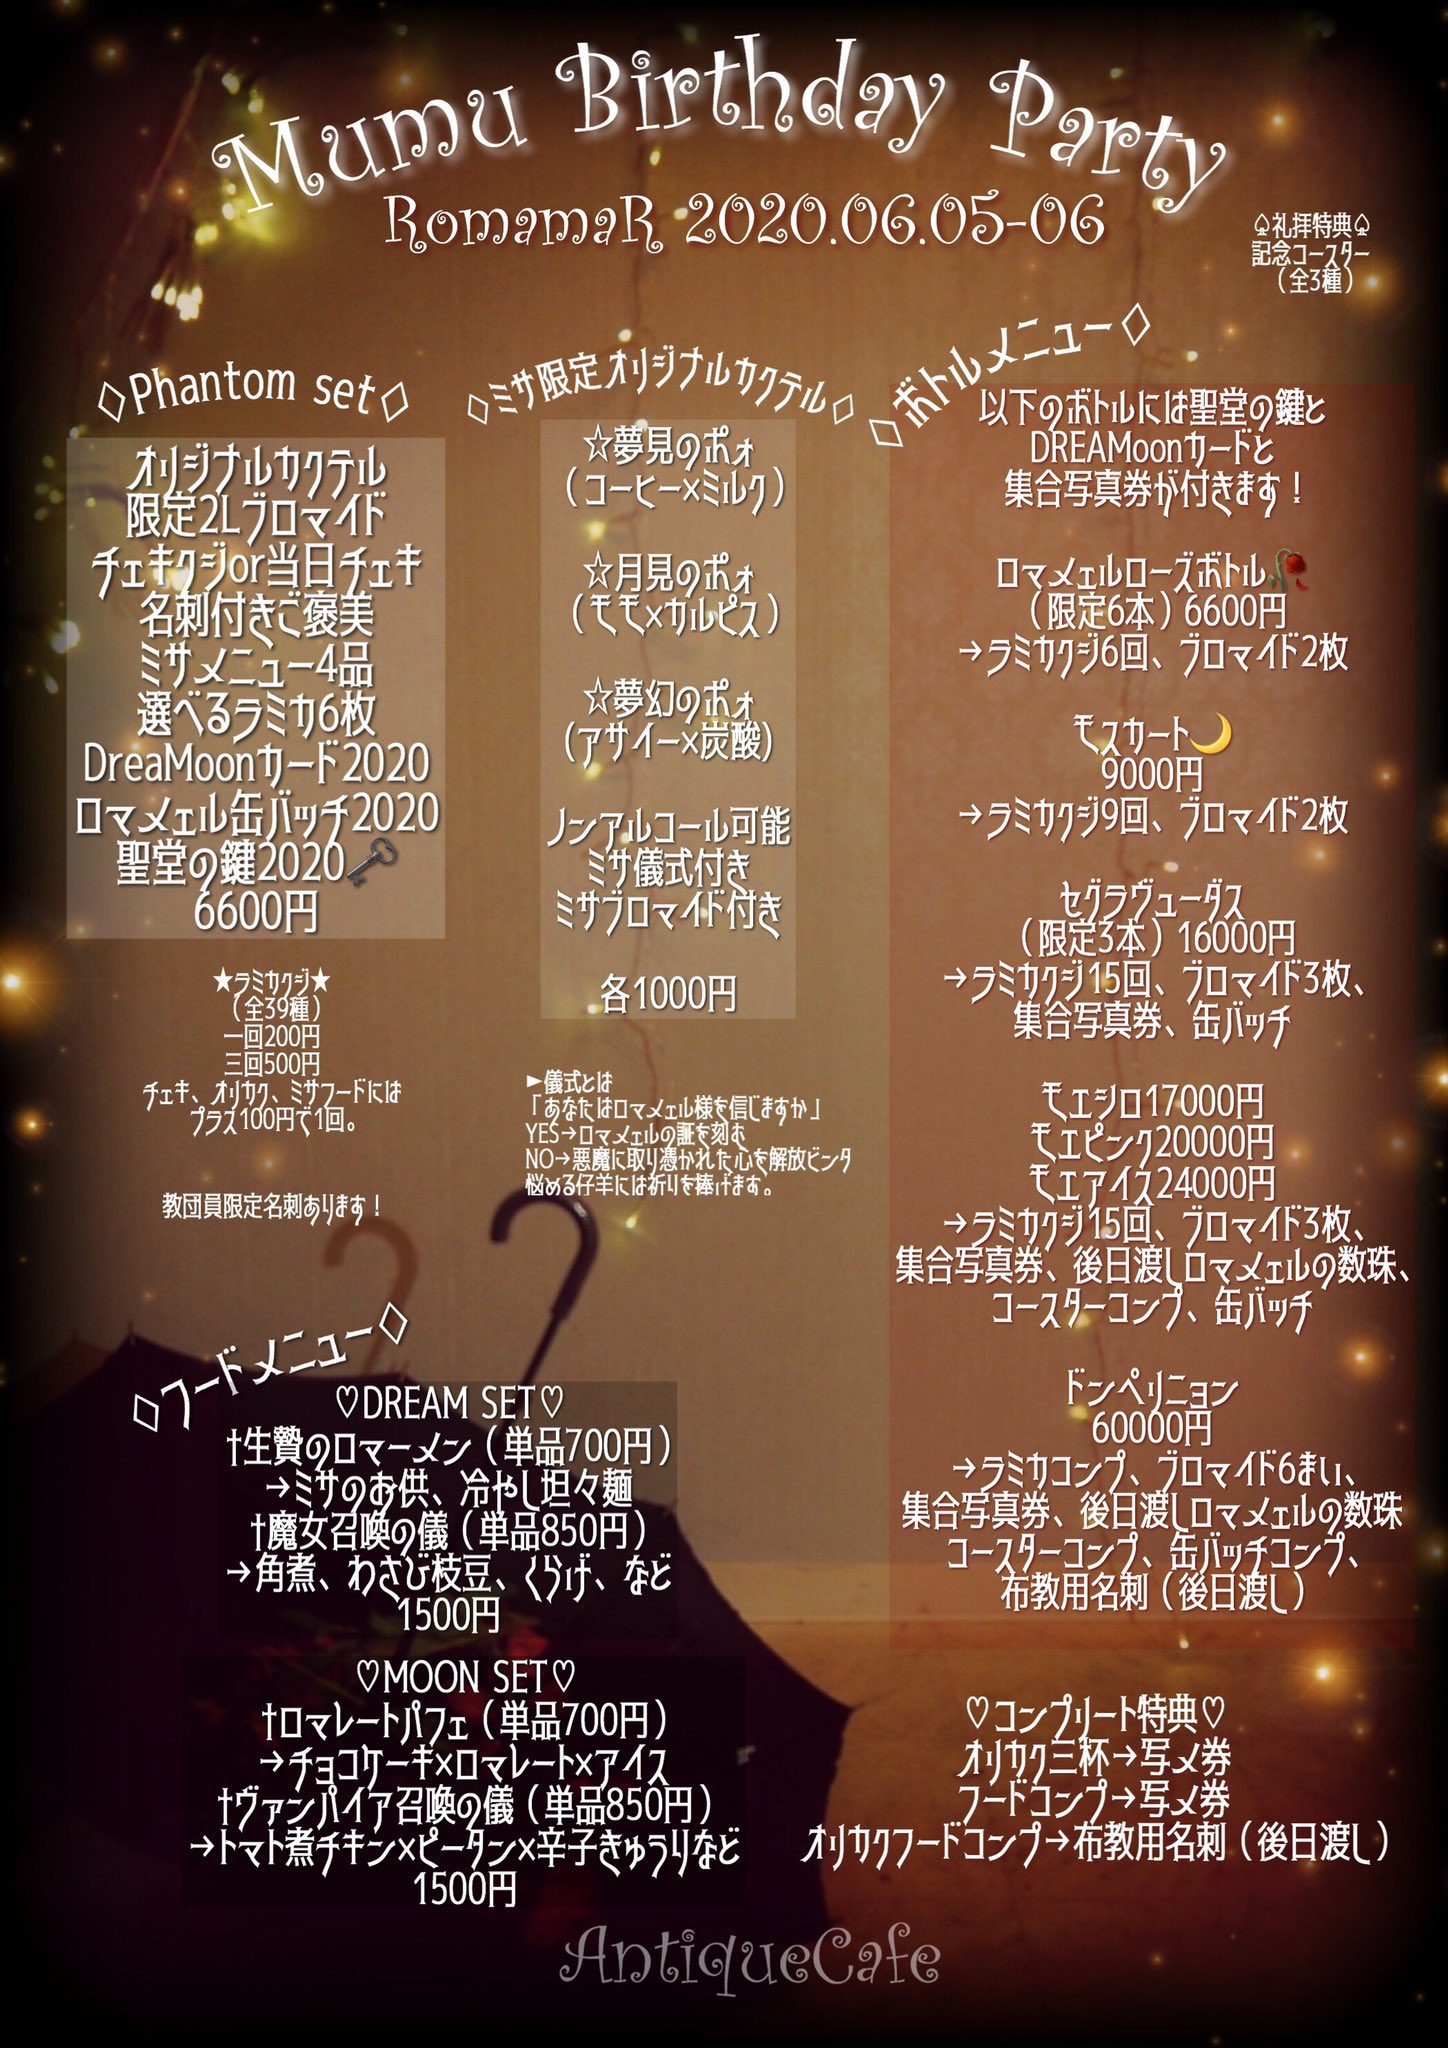 Mumu Birthday Party
RomamaR 2020.06.05-06
♤礼拝特典♤
記念コースター
（全3種）
◇Phantom set◇
オリジナルカクテル
限定2Lブロマイド
チェキクジor当日チェキ
名刺付きご褒美
ミサメニュー4品
選べるラミカ6枚
DreaMoonカード2020
ロマメェル缶バッチ2020
聖堂の鍵2020🗝
6600円
★ラミカクジ★
（全39種）
一回200円
三回500円
チェキ、オリカク、ミサフードには
プラス100円で1回。
教団員限定名刺あります！
◇ミサ限定オリジナルカクテル◇
☆夢見のポォ
（コーヒー×ミルク）
☆月見のポォ
（モモ×カルピス）
☆夢幻のポォ
(アサイー×炭酸)
ノンアルコール可能
ミサ儀式付き
ミサブロマイド付き
各1000円
►儀式とは
「あなたはロマメェル様を信じますか」
YES→ロマメェルの証を刻む
NO→悪魔に取り憑かれた心を解放ビンタ
悩める仔羊には祈りを捧げます。
◇ボトルメニュー◇
以下のボトルには聖堂の鍵と
DREAMoonカードと
集合写真券が付きます！
ロマメェルローズボトル🥀
（限定6本）6600円
→ラミカクジ6回、ブロマイド2枚
モスカート🌙
9000円
→ラミカクジ9回、ブロマイド2枚
セグラヴューダス
（限定3本）16000円
→ラミカクジ15回、ブロマイド3枚、
集合写真券、缶バッチ
モエシロ17000円
モエピンク20000円
モエアイス24000円
→ラミカクジ15回、ブロマイド3枚、
集合写真券、後日渡しロマメェルの数珠、
コースターコンプ、缶バッチ
ドンペリニョン
60000円
→ラミカコンプ、ブロマイド6まい、
集合写真券、後日渡しロマメェルの数珠
コースターコンプ、缶バッチコンプ、
布教用名刺（後日渡し）
◇フードメニュー◇
♡DREAM SET♡
†生贄のロマーメン（単品700円）
→ミサのお供、冷やし坦々麺
†魔女召喚の儀（単品850円）
→角煮、わさび枝豆、くらげ、など
1500円
♡MOON SET♡
†ロマレートパフェ（単品700円）
→チョコケーキ×ロマレート×アイス
†ヴァンパイア召喚の儀（単品850円）
→トマト煮チキン×ピータン×辛子きゅうりなど
1500円
♡コンプリート特典♡
オリカク三杯→写メ券
フードコンプ→写メ券
オリカクフードコンプ→布教用名刺（後日渡し）
AntiqueCafe